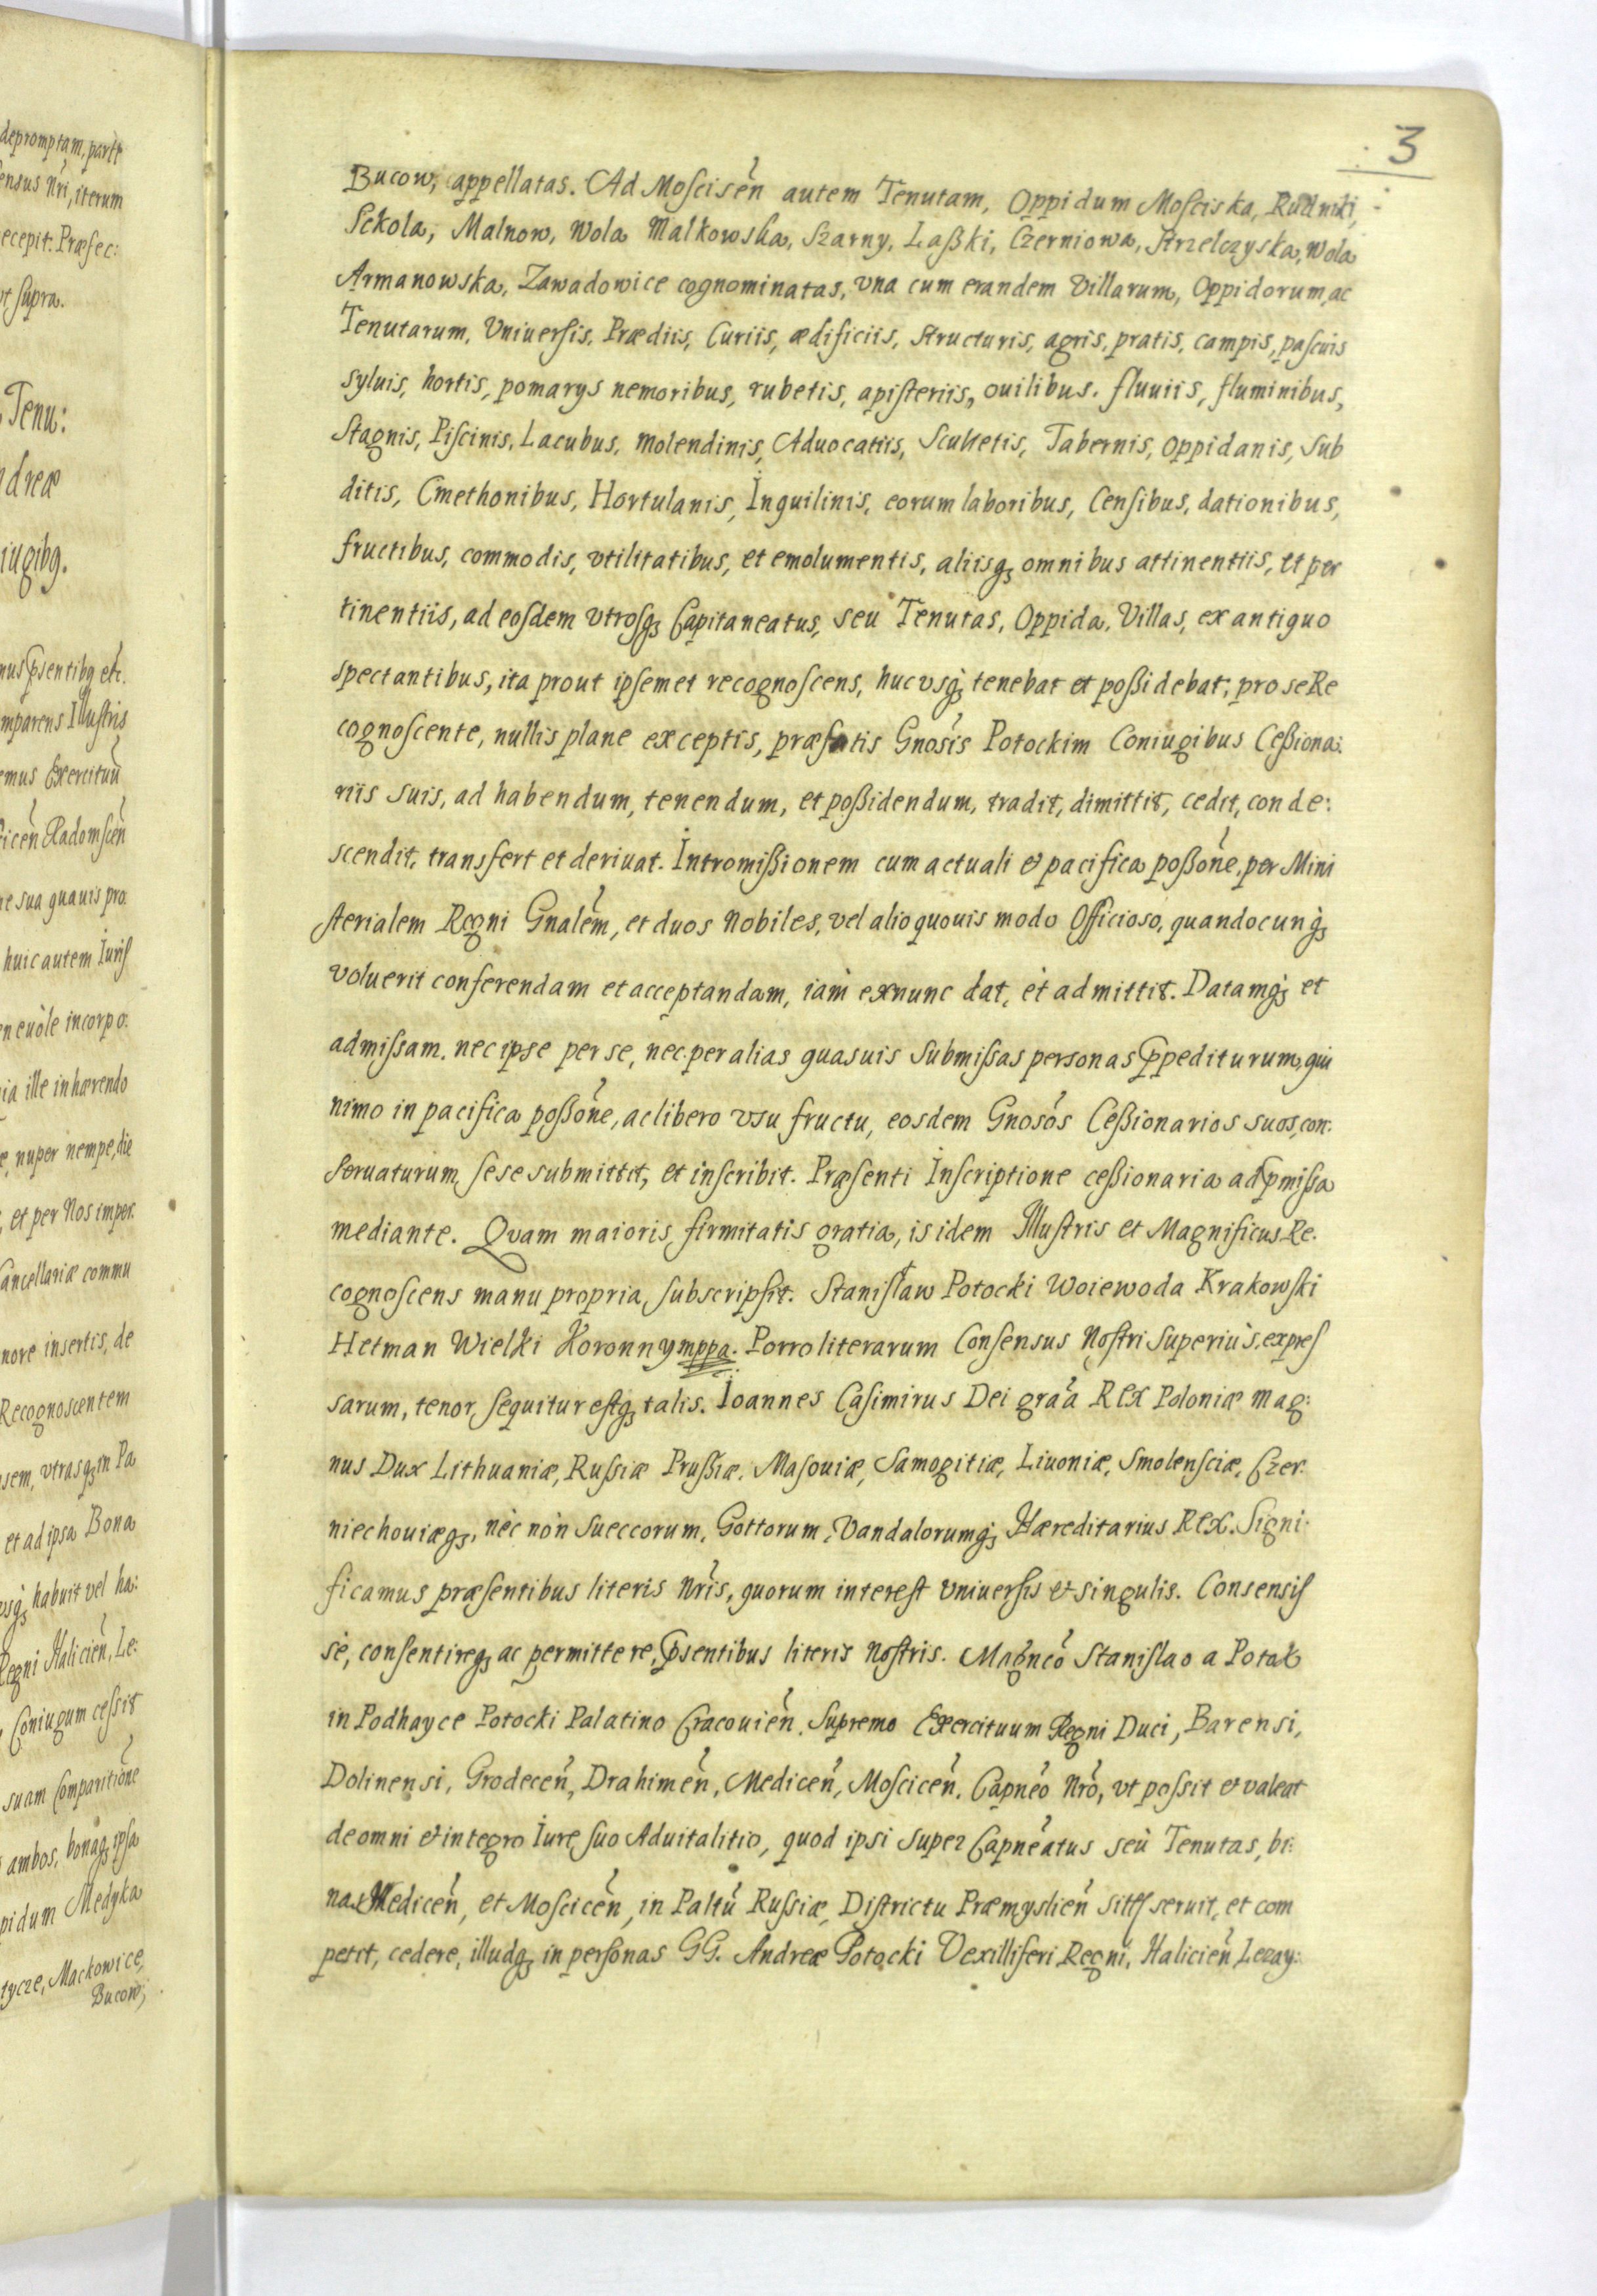 3
Bucow, appellatas. Ad Mościsen̄ autem Tenutam, Oppidum Mościska, Rudniki,
Sckola, Malnow, Wola Malkowska, Szarny, Laßki, Czerniowa, Strzelczyska, Wola
Armanowska, Zawadowice cognominatas, vna cum erandem Villarum, Oppidorum, ac
Tenutarum, Vniuersis, Prædiis, Curiis, ædificiis, structuris, agris, pratis, campis, pascuis
syluis, hortis, pomarys nemoribus, rubetis, apisteriis, ouilibus. fluuiis, fluminibus,
Stagnis, Piscinis, Lacubus, molendinis, Aduocatiis, Scultetis, Tabernis, oppidanis, Sub
ditis, Cmethonibus, Hortulanis, Inquilinis, eorum laboribus, Censibus, dationibus,
fructibus, commodis, vtilitatibus, et emolumentis, aliisq3 omnibus attinentiis, et per
tinentiis, ad eosdem vtrosq3 Capitaneatus, seu Tenutas, Oppida, Villas, ex antiquo
spectantibus, ita prout ipsemet recognoscens, hucvsq3 tenebat et poßidebat, pro se Re
cognoscente, nullis plane exceptis, præfatis Gnosis Potockim Coniugibus Ceßiona:
riis suis, ad habendum, tenendum, et poßidendum, tradit, dimittit, cedit, conde:
scendit, transfert et deriuat. Intromißionem cum actuali et pacifica poßone, per Mini
sterialem Regni Gnalem, et duos Nobiles, vel alio quouis modo Officioso, quandocunq3
voluerit conferendam et acceptandam, iam exnunc dat, et admittit. Datamq3 et
admissam, nec ipse per se, nec per alias quasuis submissas personas p̄pediturum, qui
nimo in pacifica poßone, ac libero vsu fructu, eosdem Gnosos Ceßionarios suos, con:
seruaturum, sese submittit, et inscribit. Præsenti Inscriptione ceßionaria ad p̄missa
mediante. Quam maioris firmitatis gratia, is idem Illustris et Magnificus Re.
cognoscens manu propria subscripsit. Stanisław Potocki Woiewoda Krakowski
Hetman Wielki Koronny mppa. Porro literarum Consensus Nostri superiùs, expres
sarum, tenor sequitur estq3 talis. Ioannes Casimirus Dei graa Rex Poloniæ Mag:
nus Dux Lithuaniæ, Russiæ Prußiæ, Masouiæ, Samogitiæ, Liuoniæ, Smolensciæ, Czer:
niechouiæq3, nèc nòn Sueccorum, Gottorum, Vandalorumq3 Hæreditarius Rex. Signi:
ficamus præsentibus literis Nris, quorum interest vniuersis et singulis. Consensis
sè, consentireq3 ac permittere, p̄sentibus literis Nostris. Magneo Stanislao a Potok
in Podhayce Potocki Palatino Cracouien̄, Supremo Exercituum Regni Duci, Barensi,
Dolinensi, Grodecen̄, Drahimen̄, Medicen̄, Moscicen̄, Capneo Nro, vt possit et valeat
de omni et integro Iure suo Aduitalitio, quod ipsi super Capneatus seù Tenutas, bi:
nas Medicen̄, et Moscicen̄, in Paltu Russiæ, Districtu Præmyslien̄ sit͠s seruit, et com
petit, cedere, illudq3 in personas GG. Andreæ Potocki Vexilliferi Regni, Halicien̄ Lezay: